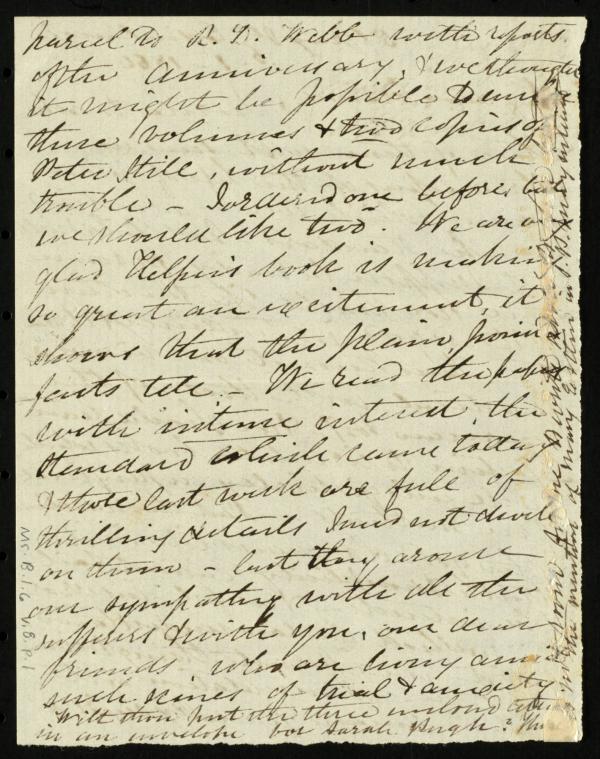 parcel to R. D. Webb with reports
of the anniversary, & we thought
it might be possible to send
three volumes & two copies of
Peter Still, without much
trouble – I ordered one before but
we should like two. We are
glad Helper's book is making
so great an excitement, it
shows that the plain
facts tell – We read the papers
with intense interest, the
Standard which came today
& those last week are full of
thrilling details I need not dwell
on them – but they arouse
our sympathy with all the
sufferers & with you, our dear
friends who are living amid
such scenes of trial & anxiety
Wilt thou put the three inclosed
in an envelope for Sarah Pugh?
the mention of Mary E
Ms. B.1.6 V.8 P.1